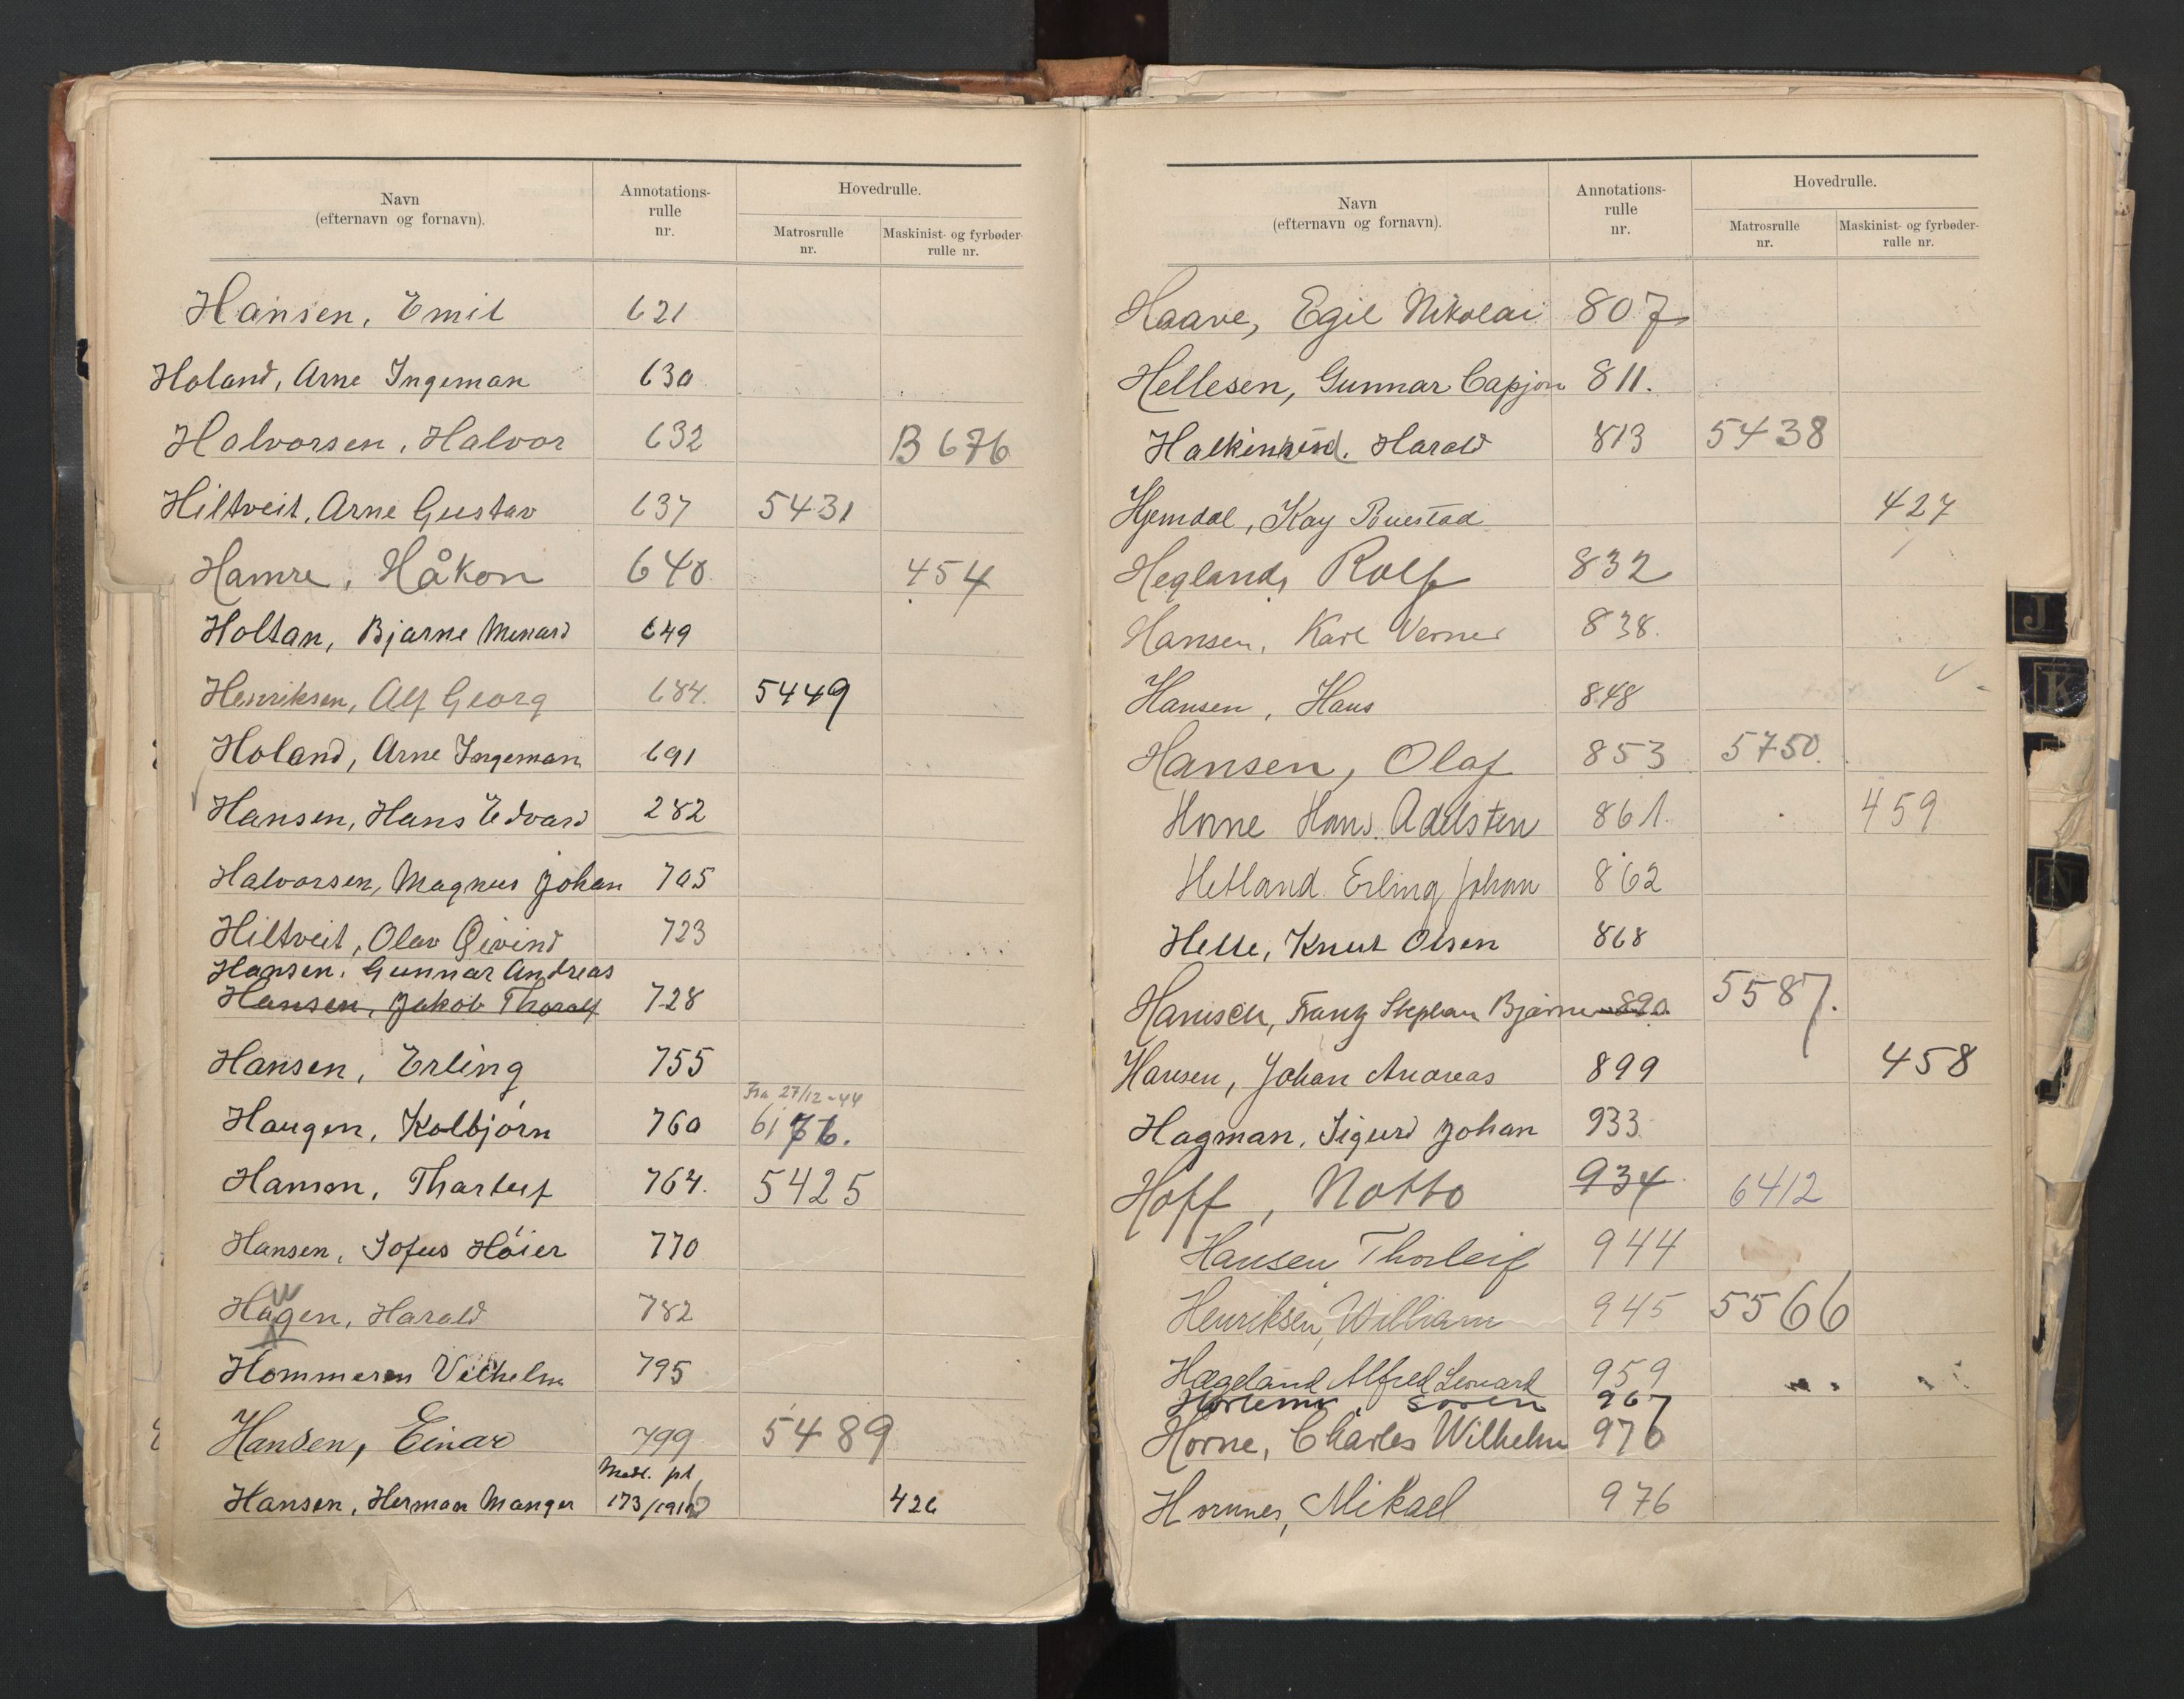 Navn
(efternavn og fornavn).
Annotations-
rulle
nr.
Hovedrulle.
Matrosrulle
nr.
Maskinist- og fyrbøder-
rulle nr.
Hansen, Emil 621
Holand, Arne Ingeman 630
Halvorsen, Halvor 632 B 676
Hiltveit, Arne Gustav 637 5431
Hamre, Håkon 640. 454
Holtan, Bjarne Menard 649
Henriksen, Alf Georg 684. 5449
Holand, Arne Ingeman 691
Hansen, Hans Edvard 282
Halvorsen, Magnus Johan 705
Hiltveit, Olav Øivind 723
Hansen, Gunnar Andreas
Hansen, Jakob Thoralf 728
Hansen, Erling 755
Fra 27/12-44
Haugen, Kolbjørn 760 6176.
Hanson, Thorleif 764. 5425
Hansen, Sofus Höier 770
Haugen, Harald 782
Hommeren Vilhelm 795
Hansen, Einar 799 5489
Hansen, Herman Manger 173/1910 426
Navn
(efternavn og fornavn).
Annotations-
rulle
nr.
Hovedrulle.
Matrosrulle
nr.
Maskinist- og fyrbøder-
rulle nr.
Haave, Egil Nikolai 807
Hellesen, Gunnar Capjon 811.
Harald 813 5438
Hjemdal, Kay Buestad 427
Hegland, Rolf 832
Hansen, Karl Verner 838.
Hansen, Hans 848
Hansen, Olaf 853 5750.
Horne Hans Adelsten 861. 459
Hetland Erling Johan 862
Helle, Knut Olsen 868
Hanisch, Franz Stephan Bjarne 890. 5587.
Hansen, Johan Andreas 899 458
Hagman, Sigurd Johan 933
Hoff, Notto 934 6412
Hansen Thorleif 944
Henriksen, William 945 5566
Hægeland Alfred Leonard 959
Søren 967
Horne, Charles Wilhelm 970
Hornnes, Mikael 976
J
K
N